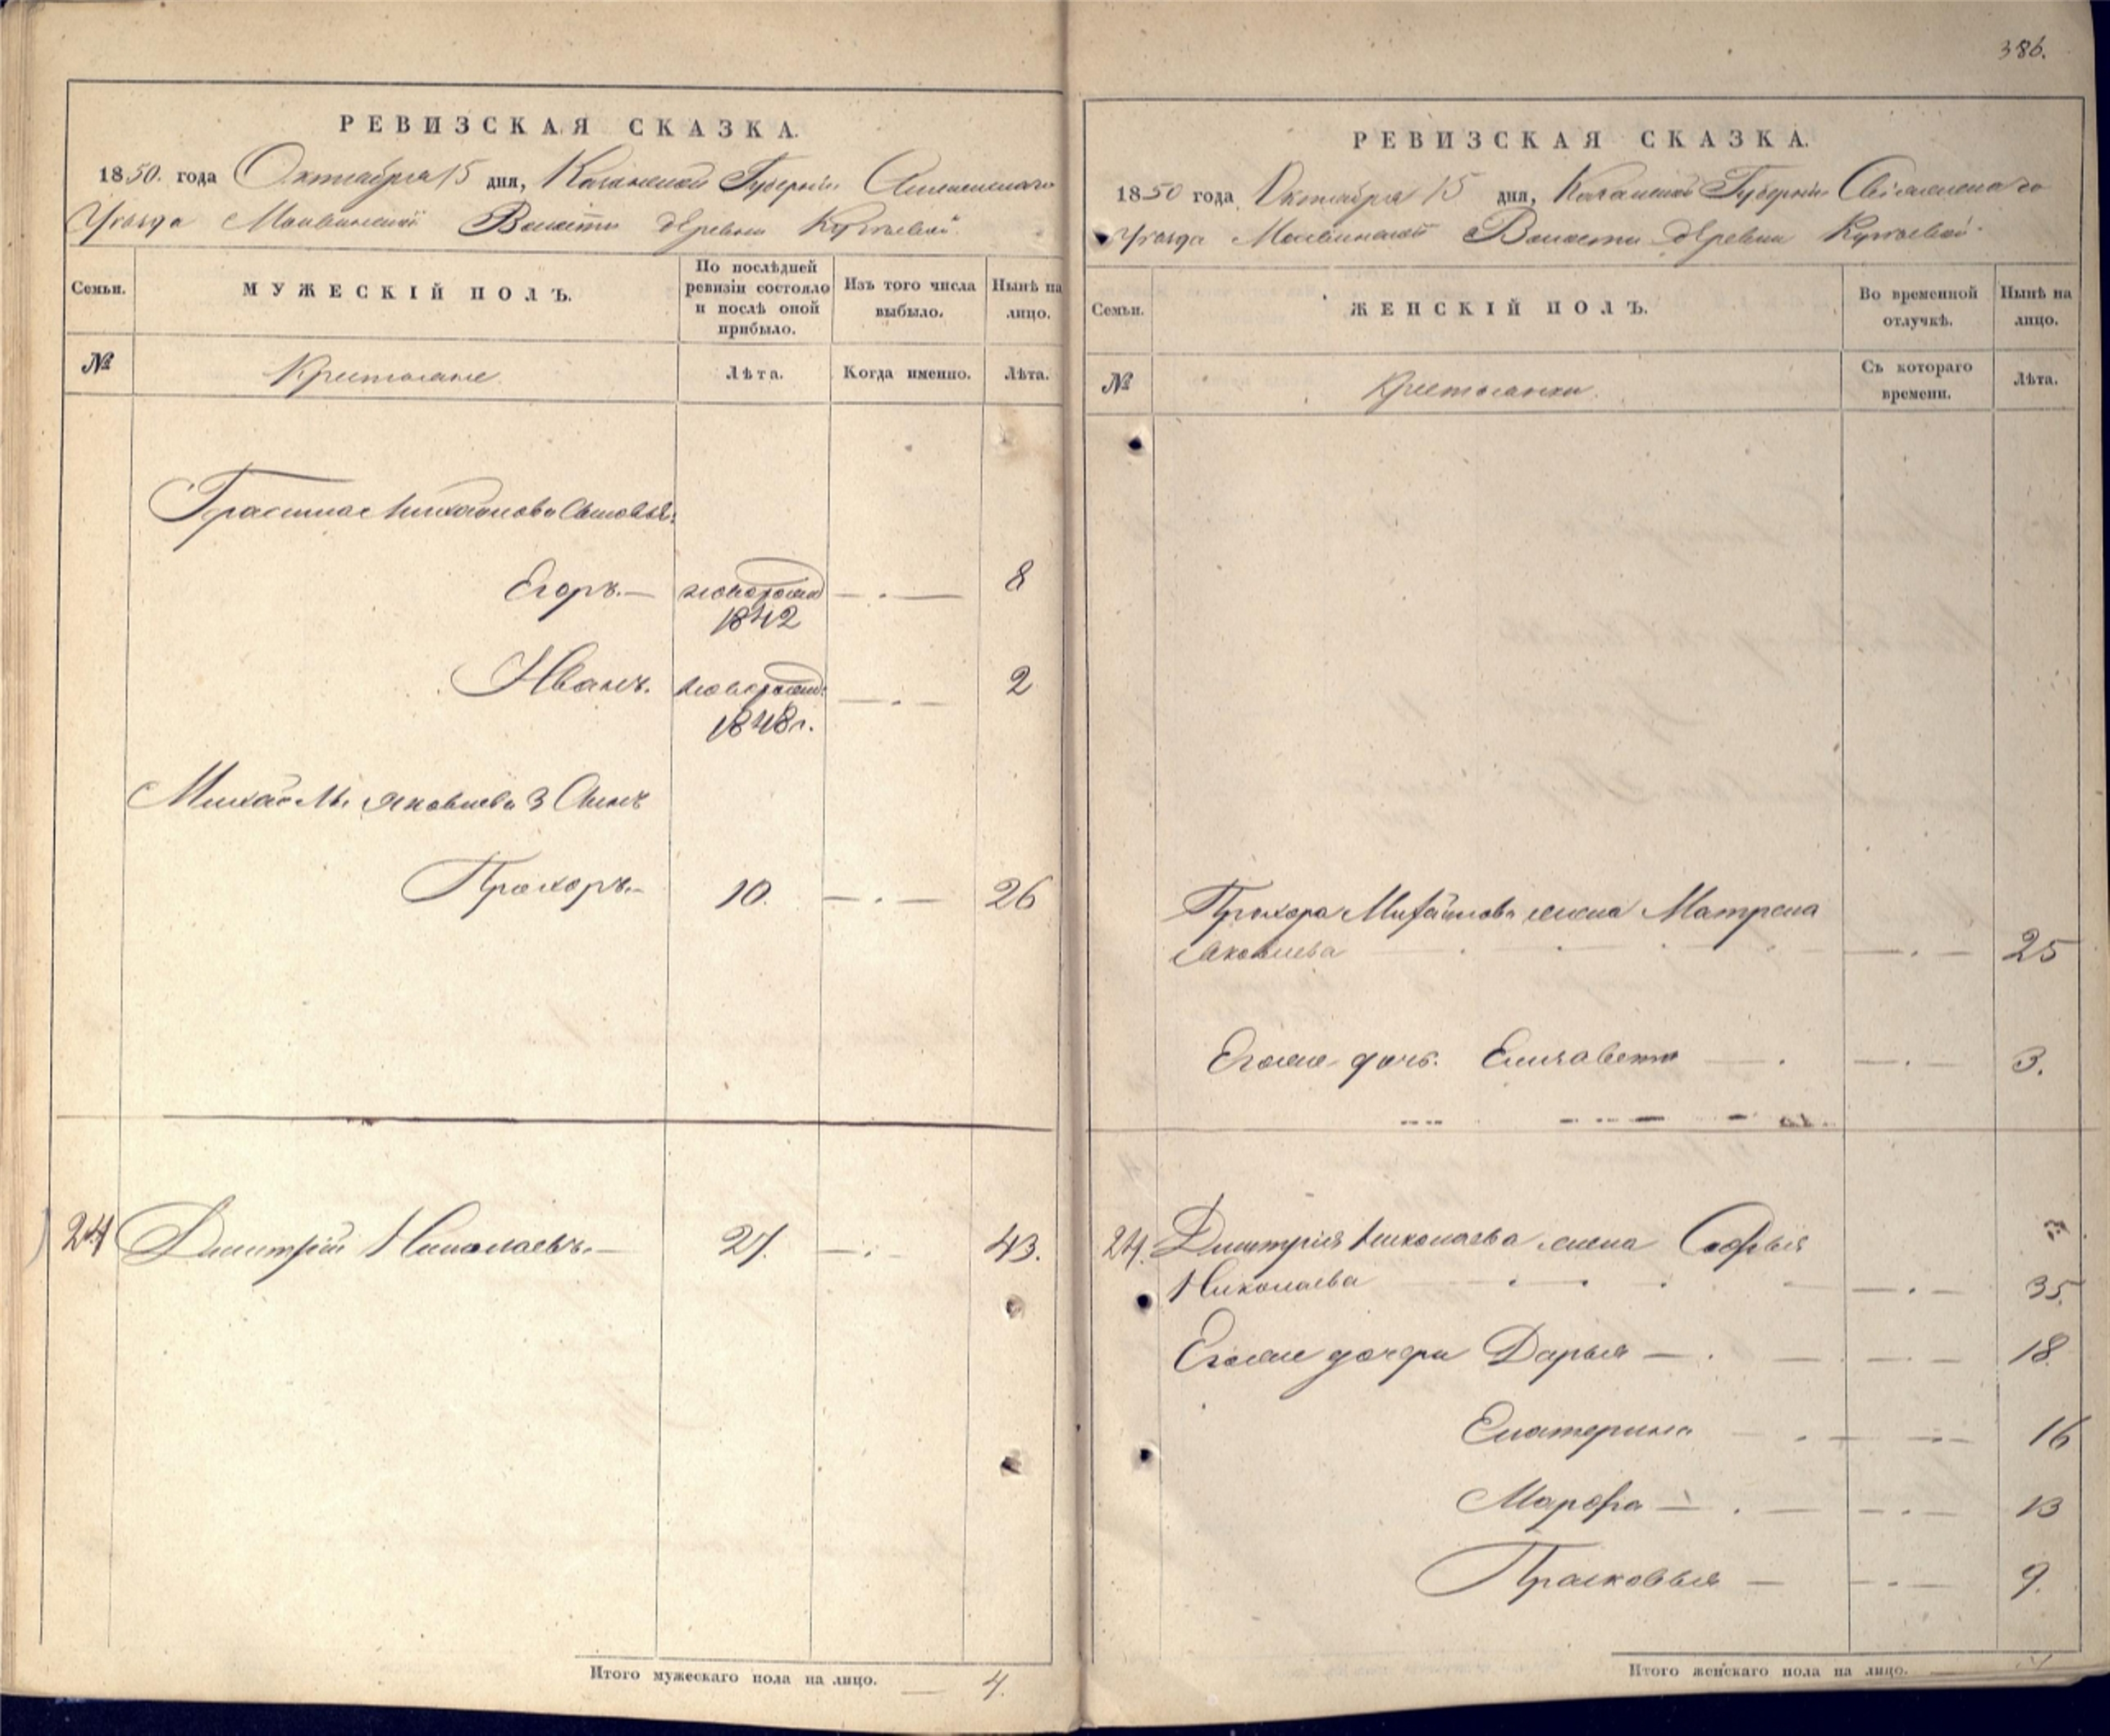 386.
РЕВИЗСКАЯ СКАЗКА.
1850. года Октября 15 дня, Казанской Губернiи Свiяжскаго
Уѣзда Волости Деревни
Семьи.
МУЖЕСКІЙ ПОЛЪ.
По послѣдней ревизіи состояло и послѣ оной прибыло.
Изъ того числа выбыло.
Нынѣ на лицо.
№
Крестьяне
Лѣта.
Когда именно.
Лѣта.
Герасима Михайлова Сыновья:
Егоръ.— новорожд —.— 8
1842
Иванъ. новорожд: —.— 2
1848г.
Яковлева 3 Сынъ
Прохоръ.— 10. —.— 26
24 Дмитрiй Николаевъ.— 27. —.— 43.
Итого мужескаго пола на лицо. — 4.
РЕВИЗСКАЯ СКАЗКА.
1850 года Октября 15 дня, Казанской Губернiи Свiяжскаго
Уѣзда Волости Деревни
Семьи.
ЖЕНСКІЙ ПОЛЪ.
Во временной отлучкѣ.
Нынѣ на лицо.
№
Крестьянки.
Съ котораго времени.
Лѣта.
Прохора Михайлова жена Матрена
Яковлева —.— 25
Егоже дочь. Елизавета —. —.— 3.
24. Дмитрiя Николаева жена Софья
Николаева —.— 35
Егоже дочери Дарья —. —.— 18.
Екатерина —.— 16
Марфа —. —.— 13
Прасковья — —.— 9.
Итого женскаго пола на лицо.